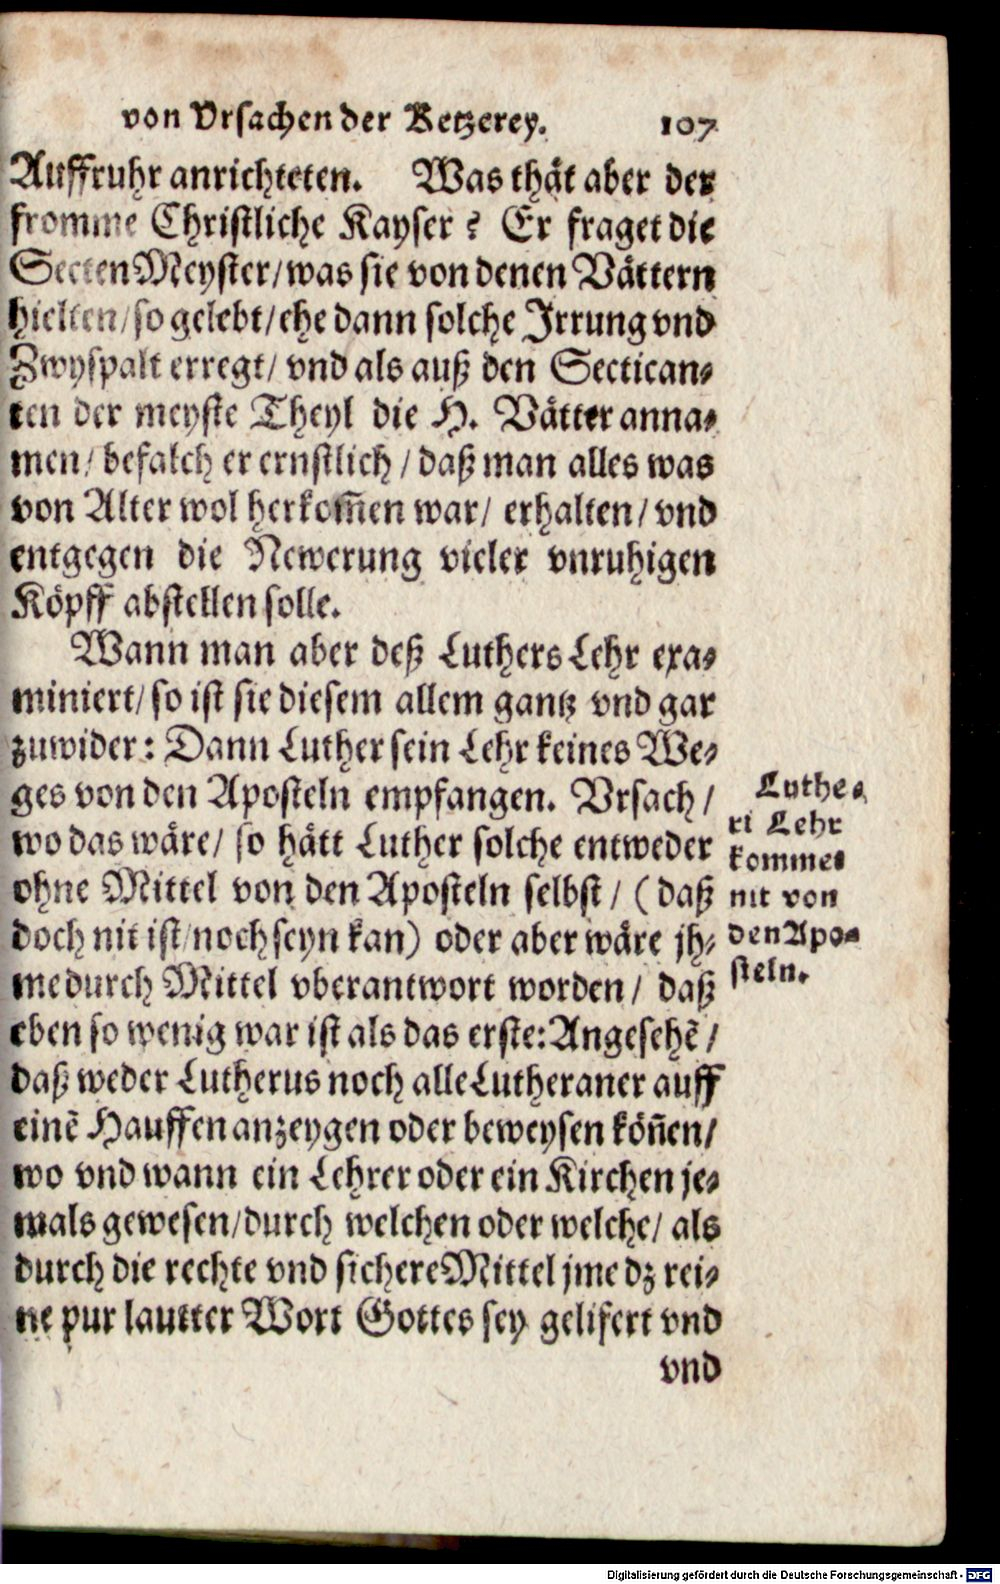 von Vrsachen der Ketzerey. 107
Auffruhr anrichteten. Was thät aber der
fromme Christliche Kayser? Er fraget die
Secten Meyster/ was sie von denen Vättern
hielten/ so gelebt/ ehe dann solche Irrung vnd
Zwyspalt erregt/ vnd als auß den Sectican-
ten der meyste Theyl die H. Vätter anna-
men/ befalch er ernstlich/ daß man alles was
von Alter wol herkom̃en war/ erhalten/ vnd
entgegen die Newerung vieler vnruhigen
Köpff abstellen solle.
Wann man aber deß Luthers Lehr exa-
miniert/ so ist sie diesem allem gantz vnd gar
zuwider: Dann Luther sein Lehr keines We-
ges von den Aposteln empfangen. Vrsach/
wo das wäre/ so hätt Luther solche entweder
ohne Mittel von den Aposteln selbst/ (daß
doch nit ist/ noch seyn kan) oder aber wäre jh-
me durch Mittel vberantwort worden/ daß
eben so wenig war ist als das erste: Angesehẽ/
daß weder Lutherus noch alle Lutheraner auff
einẽ Hauffen anzeygen oder beweysen köñen/
wo vnd wann ein Lehrer oder ein Kirchen je-
mals gewesen/ durch welchen oder welche/ als
durch die rechte vnd sichere Mittel jme dz rei-
ne pur lautter Wort Gottes sey gelifert vnd
vnd
Luthe-
ri Lehr
kommet
nit von
den Apo-
steln.
Digitalisierung gefördert durch die Deutsche Forschungsgemeinschaft - DFG